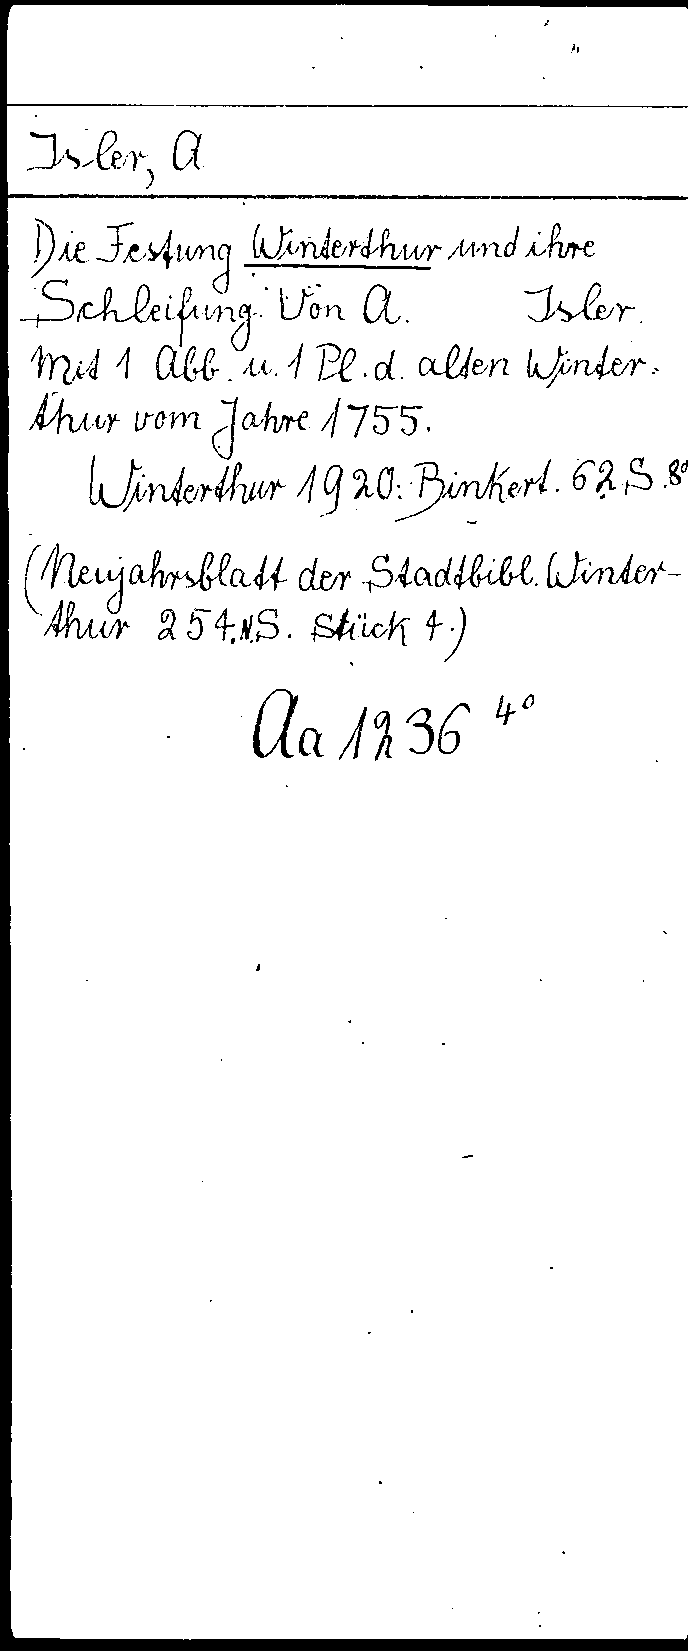 Isler, A
Die Festung Winterthur und ihre
Schleifung. Von A. Isler.
Mit 1 Abb. u. 1 Pl. d. alten Winter-
thur vom Jahre 1755.
Winterthur 1920: Binkert. 62 S. 8°
(Neujahrsblatt der Stadtbibl. Winter-
thur 254. N.S. Stück 4.)
Aa 1236 4°